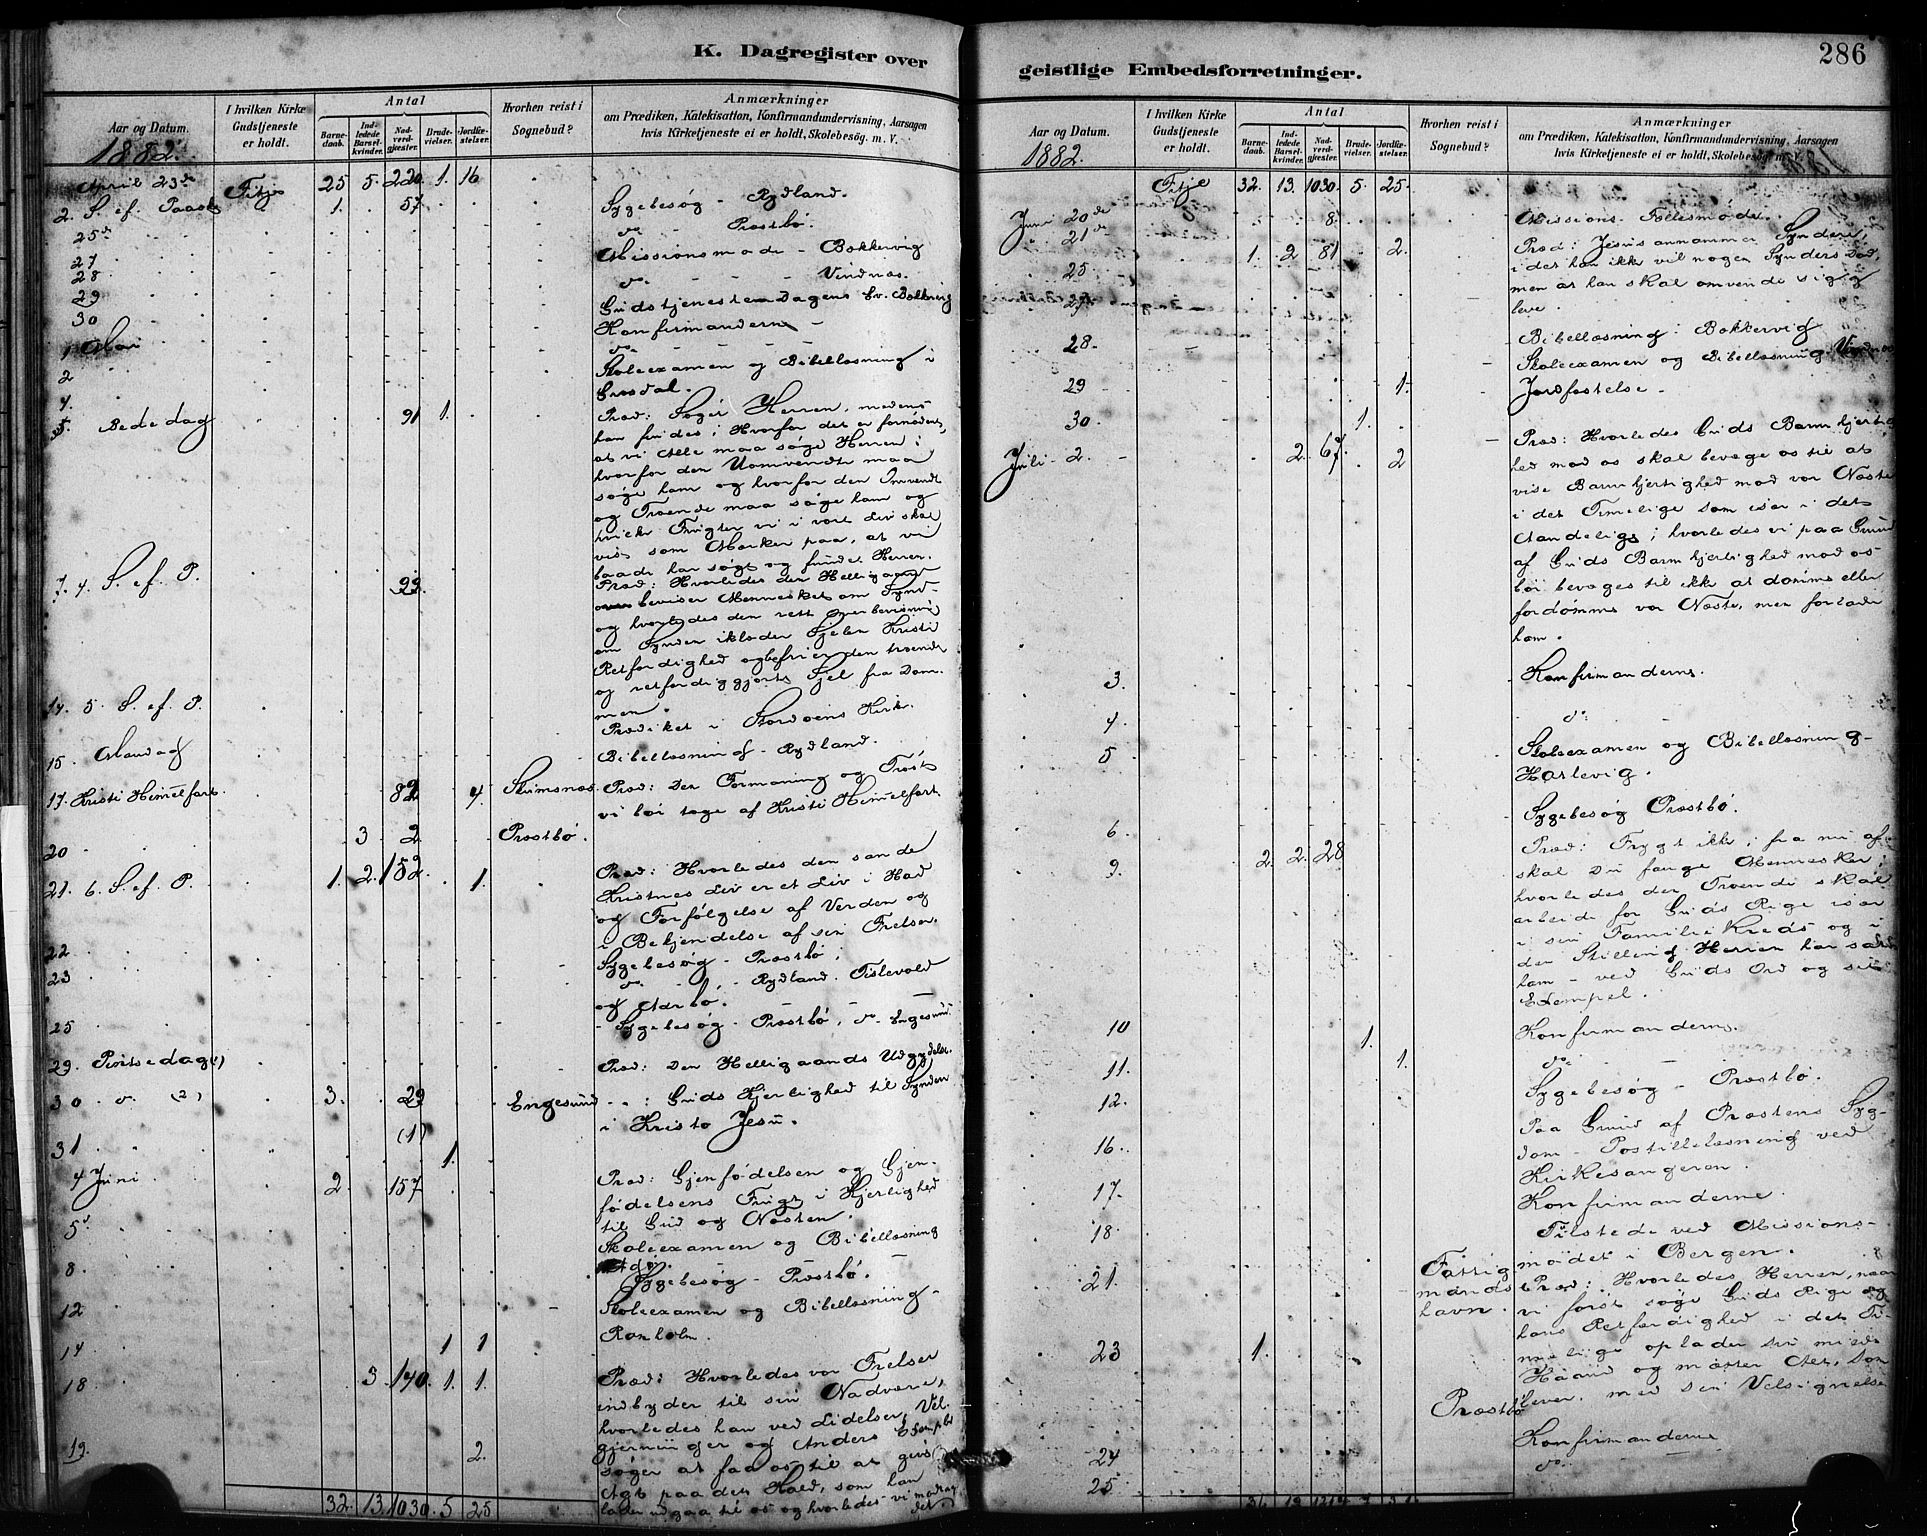 K. Dagregister over
Aar og Datum.
1882.
I hvilken Kirke
Gudstjeneste
er holdt.
Antal
Barne-
daab.
Ind-
ledede
Barsel-
kvinder.
Nad-
verd-
gjæster.
Brude-
vielser.
Jordfæ-
stelser.
Hvorhen reist i
Sognebud?
Anmærkninger
om Prædiken, Katekisation, Konfirmandundervisning, Aarsagen
hvis Kirketjeneste ei er holdt, Skolebesøg. m. V.
April 23de Fitje 25 5. 220. 1. 16
2. S. ef. Paaske 1. 57.
Sygebesøg - Rydland.
25de do - Præstbø.
27 Missionsmøde - Bakkervig
28 do. - Vindnæs.
29
30
Konfirmanderne -
1 Mai do.
2 Skoleexamen og Bibellæsning i
4.
5. Bededag 91 1.
Præd: Søger Herren, medens
han findes; Hvorfor det er fornødent,
at vi Alle maa søge Herren;
hvorfor den Uomvendte maa
søge ham og hvorfor den Omvendte
og Troende maa søge ham og
hvilke Frugter vi i vort Liv skal
vise som Mærker paa, at vi
baade har søgt og fundet Herren.
7. 4. S. ef. P. 99.
Præd: Hvorledes den Helligaand
beviser Mennesket om Synd
og hvorledes den rette Overbevisning
om Synden iklæder Sjelen Kristi
Retfærdighed og befrier den troende
og retfærdiggjorte Sjel fra Dom-
men.
14. 5. S. ef. P.
Prædiket i Stordøens Kirke
15. Mandag
Bibellæsning - Rydland.
17. Kristi Himmelfart 82 4. Skumsnæs.
Præd: Den Formaning og Trøst
vi bør tage af Kristi Himmelfart
20 3 2 Præstbø.
21. 6. S. ef. P. 1. 2. 152. 1.
Præd: Hvorledes den sande
Kristnes Liv er et Liv i Had
og Forfølgelse af Verden og
i Bekjendelse af sin Frelser.
22 Sygebesøg - Præstbø;
23 do - Rydland. Tislevold
og Aarbø.
25 Sygebesøg - Præstbø, do Engesund
29. Pintsedag (1)
Præd: Den Helligaands Udgydelse.
30. do (2) 3. 29 Engesund
: Guds Kjerlighed til Synden
i Kristo Jesu.
(1)
31 1.
4 Juni 2. 157
Præd: Gjenfødelsen og Gjen-
fødelsens Frugt i Kjerlighed
til Gud og Næsten.
5
Skoleexamen og Bibellæsning
8. Sygebesøg - Præstbø.
12 Skoleexamen og Bibellæsning -
Ranholm.
14 1 1
18 3. 140. 1. 1.
Præd: Hvorledes vor Frelser
indbyder til sin Nadvere,
hvorledes han ved Lidelser, Vel-
gjerninger og Andres Exempler
søger at faa os til at give
Agt paa det Kald, som han
lader udgaa til os og hvorledes vi modtage
det.
19. 2.
32. 13. 1030. 5 25
geistlige Embedsforretninger.
286
Aar og Datum.
1882.
I hvilken Kirke
Gudstjeneste
er holdt.
Antal
Barne-
daab.
Ind-
ledede
Barsel-
kvinder.
Nad-
verd-
gjæster.
Brude-
vielser.
Jordfæ-
stelser.
Hvorhen reist i
Sognebud?
Anmærkninger
om Prædiken, Katekisation, Konfirmandundervisning, Aarsagen
hvis Kirketjeneste ei er holdt, Skolebesøg. m. V.
Fitje 32. 13. 1030. 5. 25.
Juni 20de 8.
Missions-Fællesmøde.
21de
25 1. 2 81 2.
Præd: Jesus annammer Syndere,
idet han ikke vil nogen Synders Død,
men at han skal omvende sig og
leve.
27
Bibellæsning - Bakkervig
28. Skoleexamen og Bibellæsning
29 1. Jordfæstelse -
30. 1.
Juli - 2. 2. 67 2
Præd: Hvorledes Guds Barmhjertig-
hed mod os skal bevæge os til at
vise Barmhjertighed mod vor Næste
i det Timelige som især i det
Aandelige; hvorledes vi paa Grund
af Guds Barmhjertighed mod os
bør bevæges til ikke at dømme eller
fordømme vor Næste, men forlade
ham.
3. Konfirmanderne.
4. do.
5 Skoleexamen og Bibellæsning -
6. Sygebesøg Præstbø.
9. 2. 2. 28
Præd: Frygt ikke; fra nu af
skal Du fange Mennesker;
hvorledes den Troende skal
arbeide for Guds Rige især
i sin Familiekreds og i
den Stilling Herren har sat
ham - ved Guds Ord og sit
Exempel.
10 1. Konfirmanderne.
11. 1. do.
12. Sygebesøg - Præstbø.
16. Paa Grund af Præstens Syg-
dom - Postillelæsning ved
Kirkesangeren.
17. Konfirmanderne.
18. Tilstede ved Missions-
mødet i Bergen.
21. Fattig-
mands-
havn.
Præd: Hvorledes Herren, naar
vi først søge Guds Rige og
hans Retfærdighed i det Ti-
melige oplader sin milde
Haand og mætter Alt, som
lever, med sin Velsignelse
23 1. Præstbø
24 Konfirmanderne
25 do.